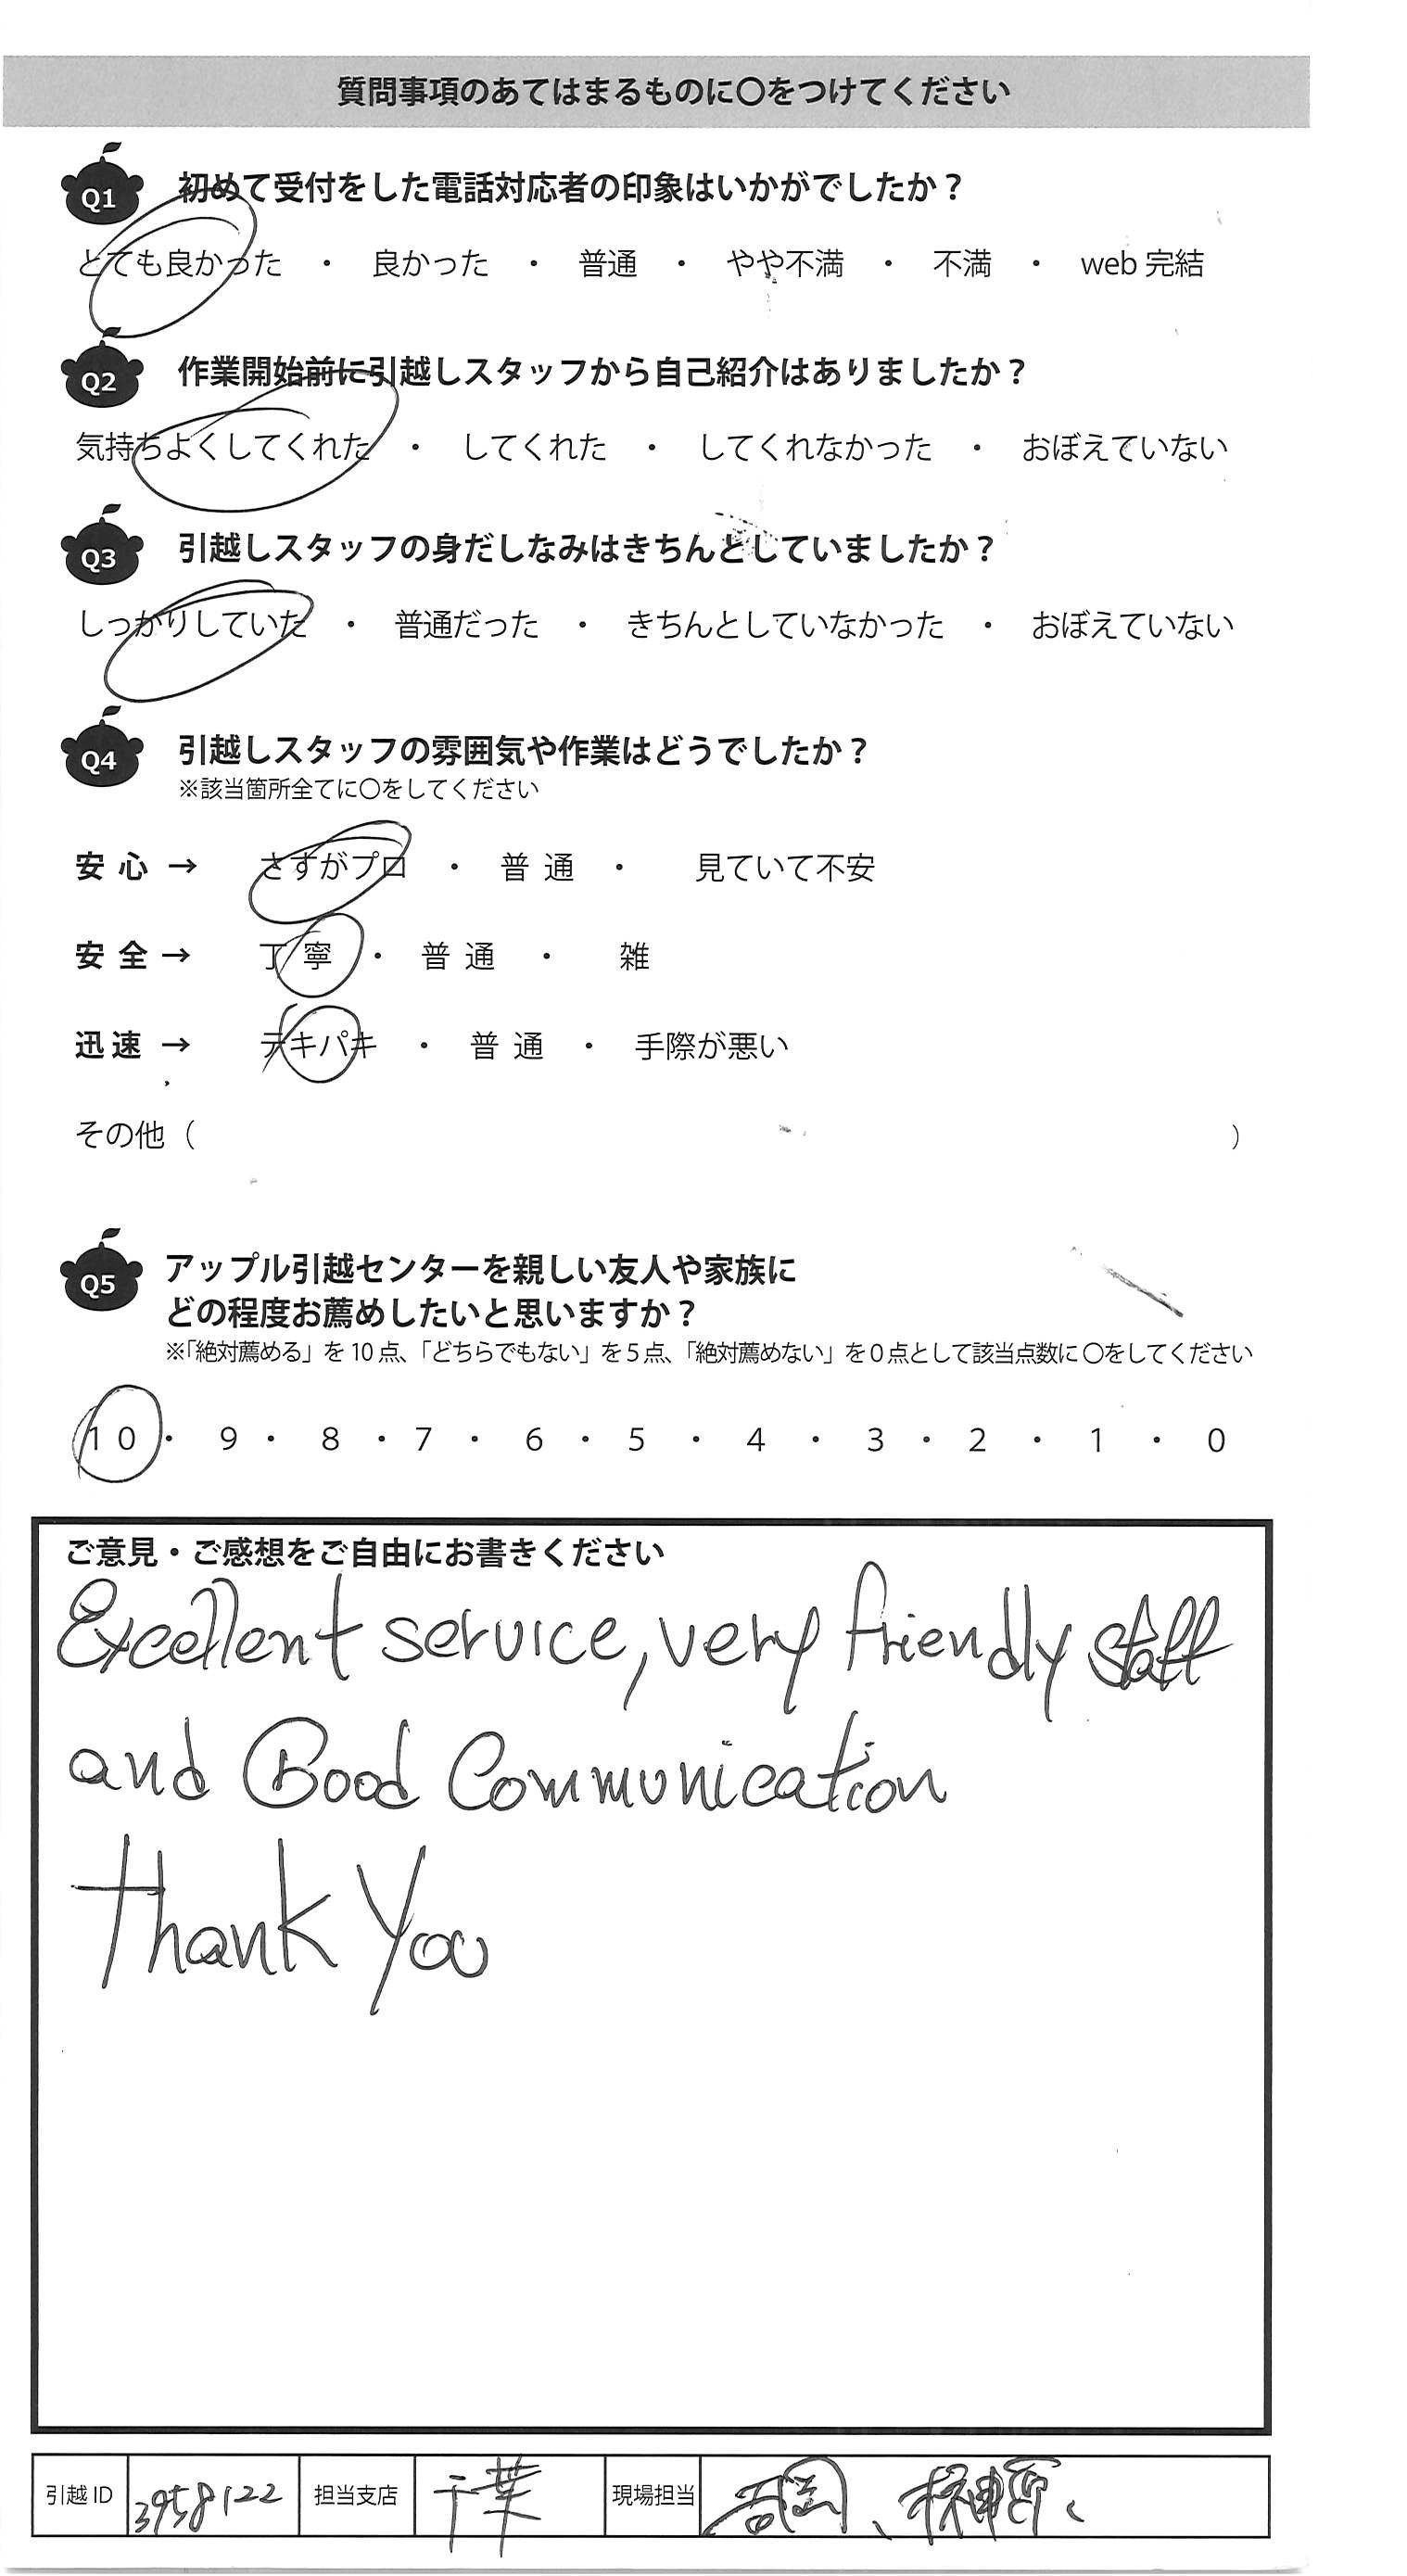 質問事項のあてはまるものに〇をつけてください
Q1 初めて受付をした電話対応者の印象はいかがでしたか？
とても良かった ・ 良かった ・ 普通 ・ やや不満 ・ 不満 ・ web 完結
Q2 作業開始前に引越しスタッフから自己紹介はありましたか？
気持ちよくしてくれた ・ してくれた ・ してくれなかった ・ おぼえていない
Q3 引越しスタッフの身だしなみはきちんとしていましたか？
しっかりしていた ・ 普通だった ・ きちんとしていなかった ・ おぼえていない
Q4 引越しスタッフの雰囲気や作業はどうでしたか？
※該当箇所全てに〇をしてください
安心 → さすがプロ ・ 普通 ・ 見ていて不安
安全 → 丁寧 ・ 普通 ・ 雑
迅速 → テキパキ ・ 普通 ・ 手際が悪い
その他（ ）
Q5 アップル引越センターを親しい友人や家族に
どの程度お薦めしたいと思いますか？
※「絶対薦める」を 10 点、「どちらでもない」を 5 点、「絶対薦めない」を 0 点として該当点数に 〇をしてください
10 ・ 9 ・ 8 ・ 7 ・ 6 ・ 5 ・ 4 ・ 3 ・ 2 ・ 1 ・ 0
ご意見・ご感想をご自由にお書きください
Excellent service, very friendly staff
and Good Communication
Thank You
引越 ID 3958122 担当支店 千葉 現場担当